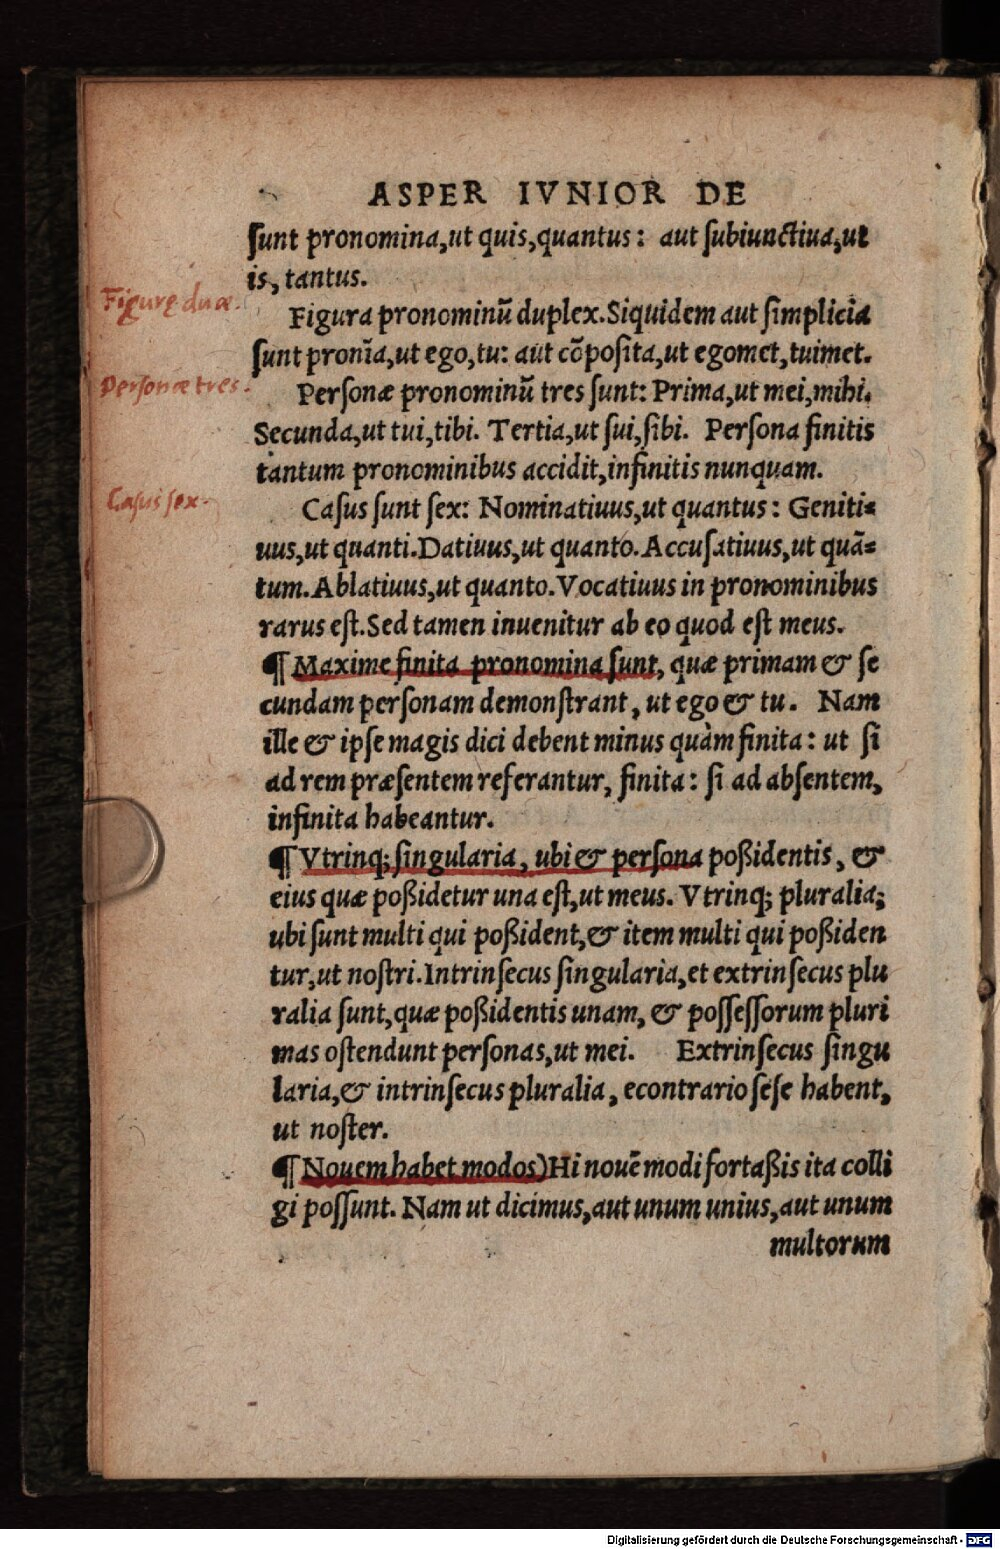 ASPER IVNIOR DE
ſunt pronomina,ut quis,quantus: aut ſubiunctiua,ut
is, tantus.
Figurę duæ.
Figura pronominū duplex.Siquidem aut ſimplicia
ſunt pronīa,ut ego,tu: aut cōpoſita,ut egomet,tuimet.
Personæ tres.
Perſonæ pronominū tres ſunt: Prima,ut mei,mihi.
Secunda,ut tui,tibi. Tertia,ut ſui,ſibi. Perſona finitis
tantum pronominibus accidit,infinitis nunquam.
Caſus ſex.
Caſus ſunt ſex: Nominatiuus,ut quantus: Geniti=
uus,ut quanti.Datiuus,ut quanto.Accuſatiuus,ut quā=
tum.Ablatiuus,ut quanto.Vocatiuus in pronominibus
rarus eſt.Sed tamen inuenitur ab eo quod eſt meus.
¶ Maxime finita pronomina ſunt, quæ primam & ſe
cundam perſonam demonſtrant, ut ego & tu. Nam
ille & ipſe magis dici debent minus quàm finita: ut ſi
ad rem præſentem referantur, finita: ſi ad abſentem,
infinita habeantur.
¶ Vtrinq; ſingularia, ubi & perſona poßidentis, &
eius quæ poßidetur una eſt,ut meus. Vtrinq; pluralia;
ubi ſunt multi qui poßident,& item multi qui poßiden
tur,ut noſtri.Intrinſecus ſingularia,et extrinſecus plu
ralia ſunt,quæ poßidentis unam, & poſſeſſorum pluri
mas oſtendunt perſonas,ut mei. Extrinſecus ſingu
laria,& intrinſecus pluralia, econtrario ſeſe habent,
ut noſter.
¶ Nouem habet modos)Hi nouē modi fortaßis ita colli
gi poſſunt. Nam ut dicimus,aut unum unius,aut unum
multorum
Digitalisierung gefördert durch die Deutsche Forschungsgemeinschaft - DFG